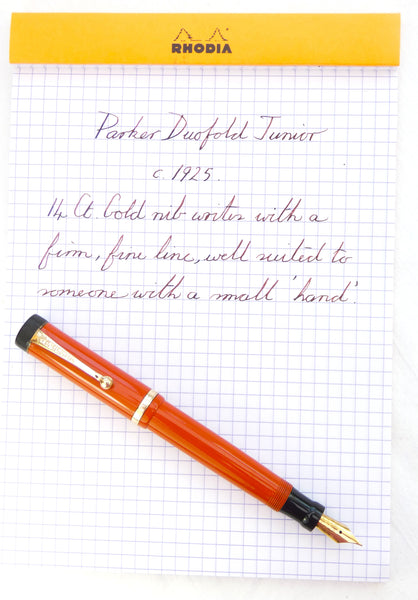 RHODIA
Parker Duofold Junior
c. 1925.
14 Ct. Gold nib writes with a
firm, fine line, well suited to
someone with a small 'hand'.